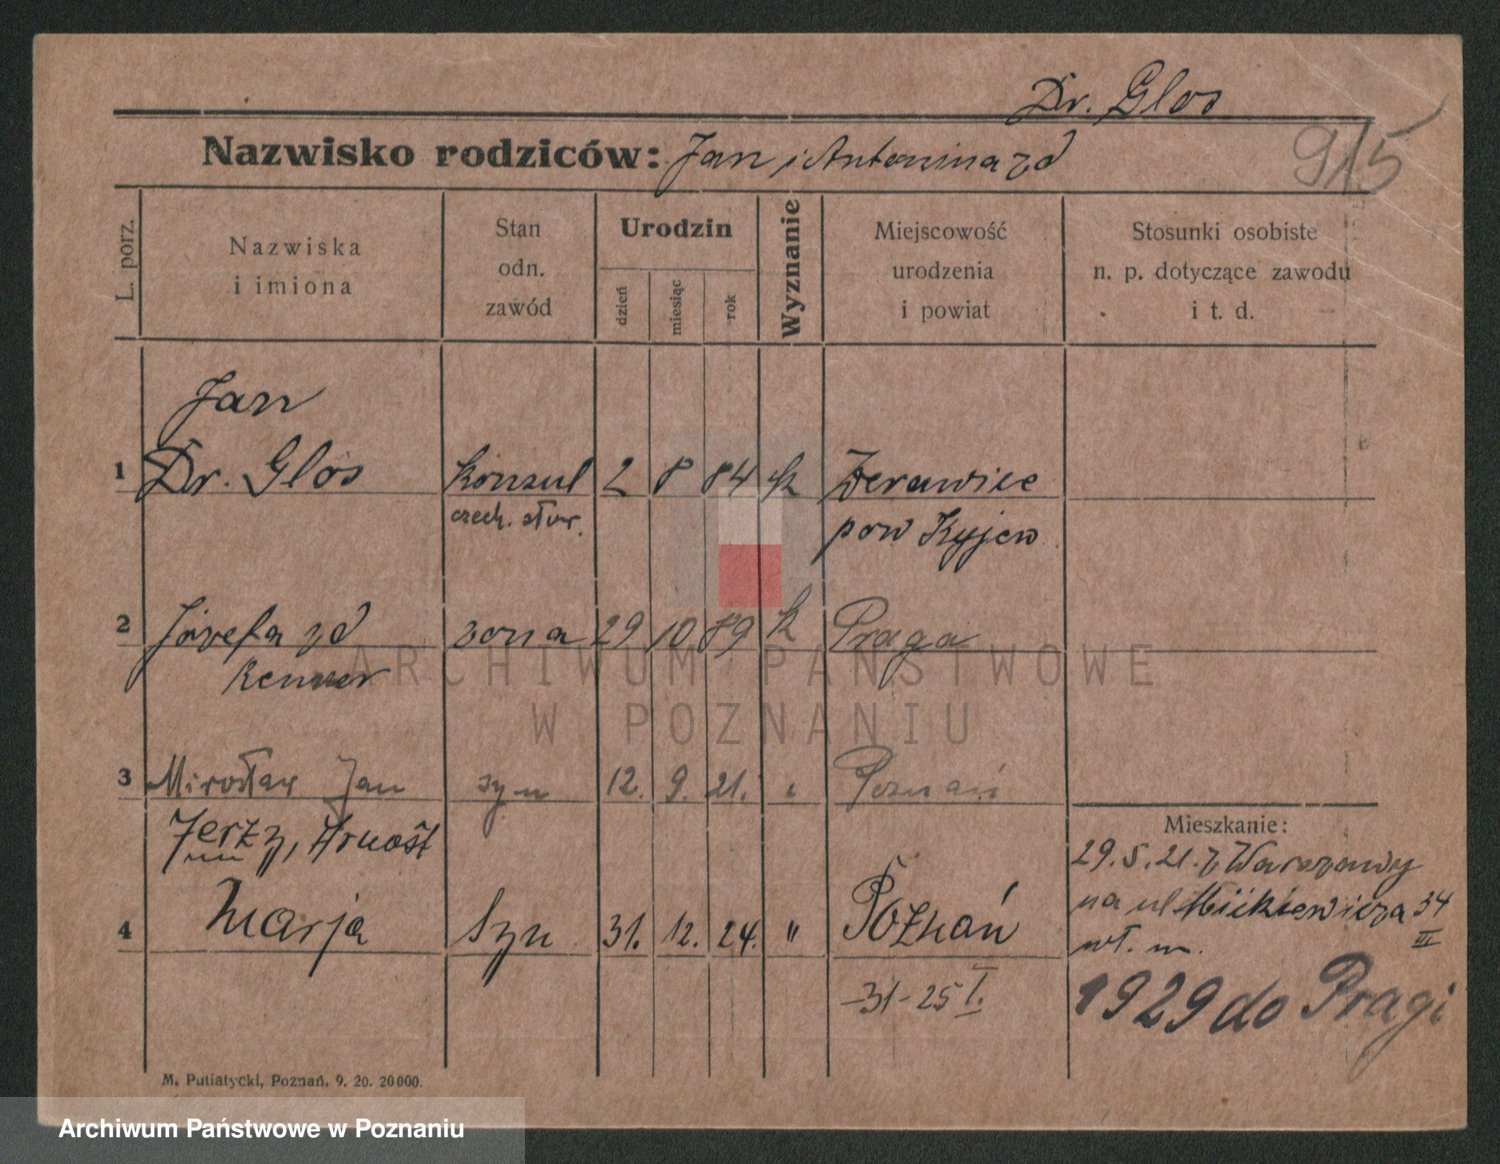 Dr. Glos
Nazwisko rodziców: Jan i Antonina zd
915
L. porz.
Nazwiska
i imiona
Stan
odn.
zawód
Urodzin
dzień
miesiąc
rok
Wyznanie
Miejscowość
urodzenia
i powiat
Stosunki osobiste
n. p. dotyczące zawodu
i t. d.
Jan
1 Dr. Glos konsul 2 8 84 k Żerawice
czech. słow. pow Kyjew
2 Józefa zd żona 29 10 89 k Praga
3 Mirosław Jan syn 12. 9. 21. " Poznań
Jerzy, Arnošt
4 Marja Syn 31. 12. 24. " Poznań
-31-25 I.
Mieszkanie:
29.5.21. z Warszawy
na ul Mickiewicza 34
III
wł. m.
1929 do Pragi
M. Putiatycki, Poznań. 9. 20. 20000.
ARCHIWUM PAŃSTWOWE
W POZNANIU
Archiwum Państwowe w Poznaniu